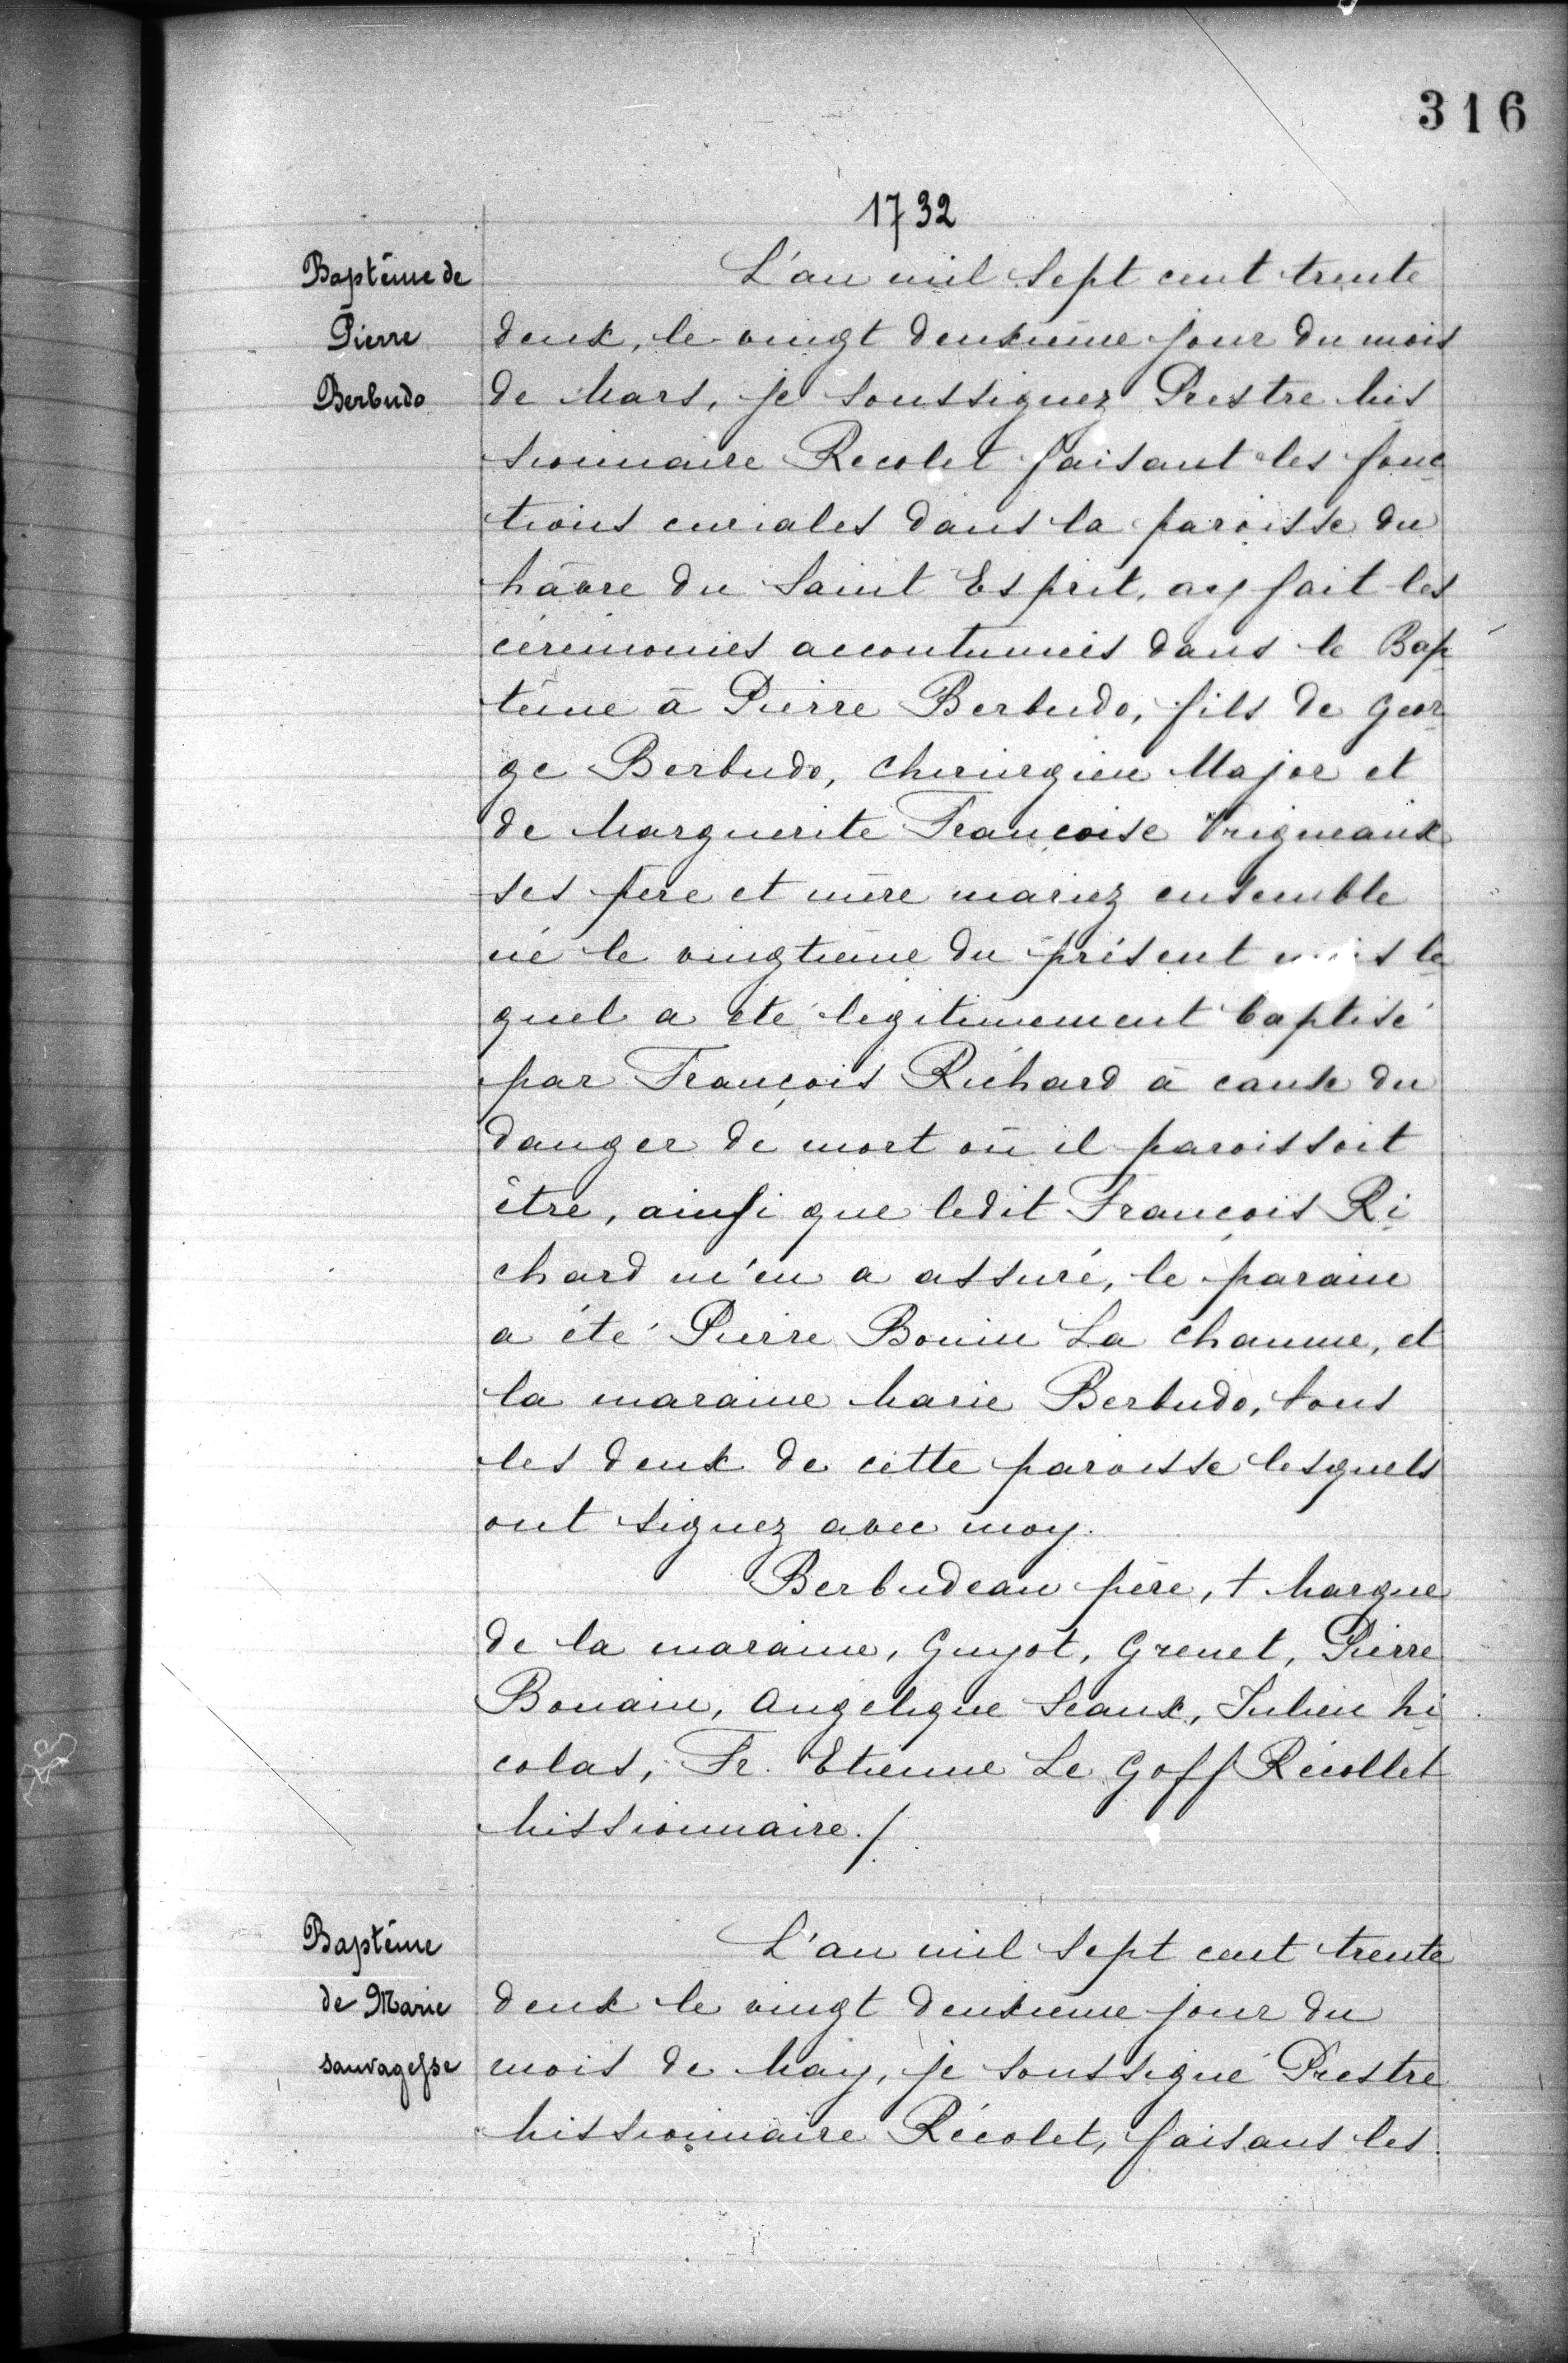 316
1732
Baptême de
Pierre
Berbudo
L'an mil sept cent trente
deux, le vingt deuxieme jour du mois
de Mars, je soussignez Prestre Mis
sionnaire Recolet faisant les fonc
tions curiales dans la paroisse du
hâvre du Saint Esprit, ay fait les
cérémonies accoutumeés dans le Bap
tême à Pierre Berbudo, fils de Geor
ge Berbudo, Chirurgien Major et
de Marguerite Françoise Vrigneaux
ses père et mère mariez ensemble
né le vingtieme du présent mois le
quel a eté legitimement baptisé
par François Richard à cause du
danger de mort où il paroissoit
être, ainsi que ledit François Ri
chard m'en a assuré, le parain
a été Pierre Bonin La Chaume, et
la maraine Marie Berbudo, tous
les deux de cette paroisse lesquels
ont signez avec moy.
Berbudeau père, † Marque
de la maraine, Guyot, Grenet, Pierre
Bonain, Angelique Seaux, Julien Ni
colas, Fr. Etienne Le Goff Récollet
Missionnaire./.
Baptême
de Marie
sauvagesse
L'an mil sept cent trente
deux le vingt deuxieme jour du
mois de May, je soussigné Prestre
Missionnaire Récolet, faisans les